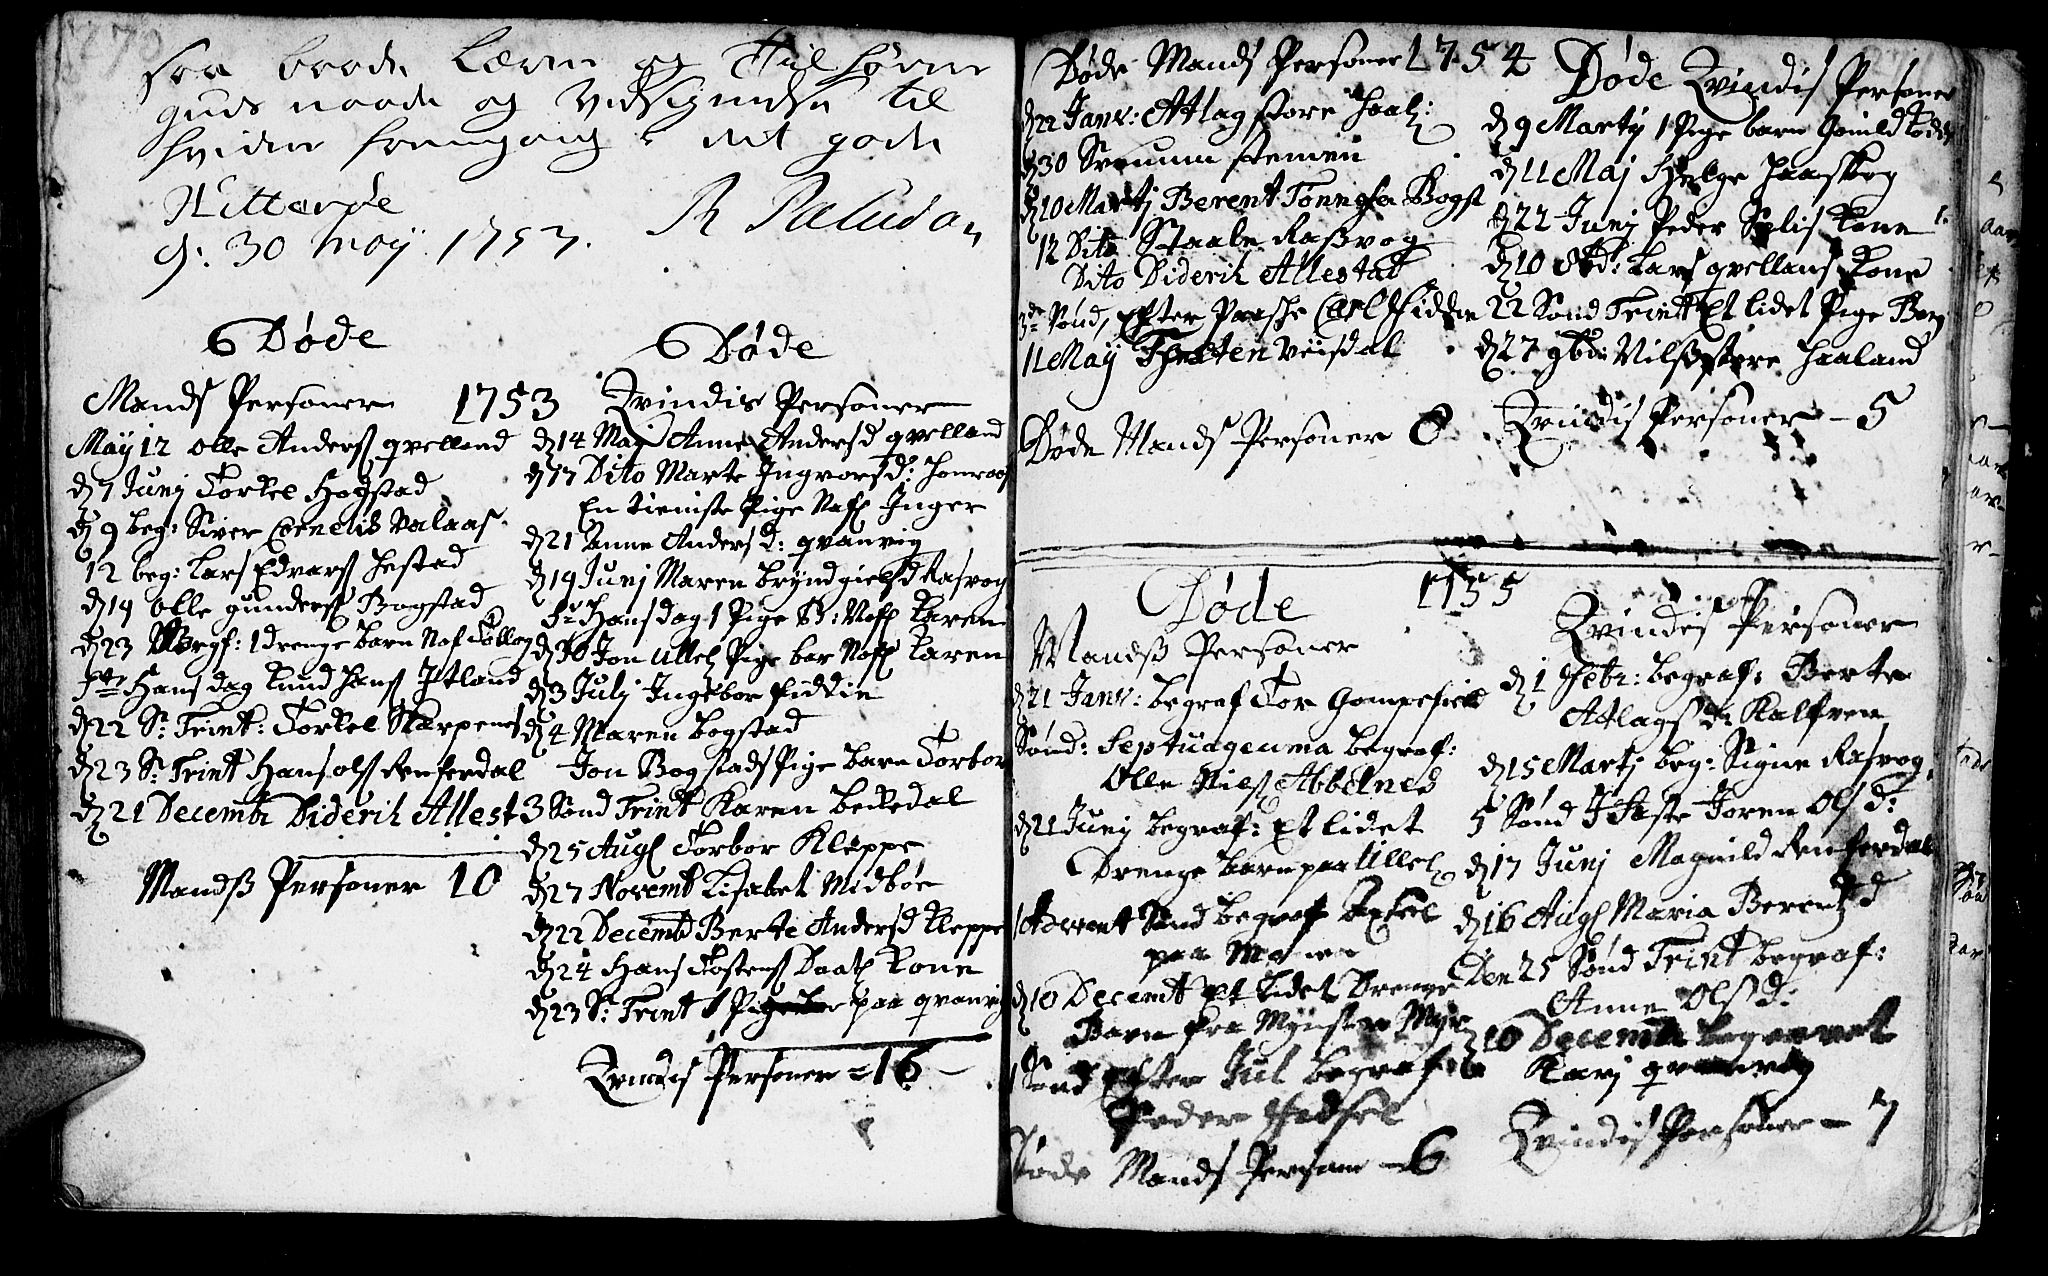 270
saa baade Lærere og Tilhørere
guds naade og Velsignelse til
hvidere fremgang i det gode
Hitterøe
d: 30 Maij 1753. R Paludan
Døde
Mands Personer 1753
May 12 Olle Anders qvelland
d 7 Junj Torkel Hogstad
d 9 beg: Siver Cornelis Valaas
12 beg: Lars Edvars hestad
d 19 Olle gunders Bogstad
d 23 Begf: 1 drenge barn Naf Tollag
Hans dag Knud Hans Itland
d 22 S: Trint: Torkel Skarpenes
d 23 S: Trint Hans Ols Renferdal
d 21 Decembr Diderik Allest
Mands Personer 10
Døde
Qvindis Personer
d 14 Maj Anne Andersd qvelland
d 17 Dito Marte Ingvorsd:
En tieniste Pige Nafl Inger
d 21 Anne Anders d: qvanvig
d 19 Junj Maren Bryndgielsd Rasvog
Hans dag 1 Pige B: Nafl Karen
d 30 Jon Ullel Pige bar Nafl Karen
d 3 Julj Ingebor fiddin
d 4 Maren Bogstad
Jon Bogstads Pige barn Torbor
3 Sønd Trint Karen Bekedal
d 25 Aug Torbor Kleppe
d 27 Novemb Lisabet Midbøe
d 22 Decemb Berte Andersd Kleppe
d 24 Hans Tostens Daatl Kone
d 23 S: Trint 1 Pige paa qvanvig
Qvindis Personer = 16
Døde Mands Personer 1754
d 22 Janv: Atlag store haal:
d 30 stemen
d 10 Martj Berent Tønnesen Bogst
12 Dito Staale Rasvog
Dito Diderik Allestad
3de Sønd, Efter Paaske Carl Hidden
11 May Thosten Veisdal
Døde Mands Personer 8.
Døde Qvindis Personer
d 9 Martij 1 Pige barn Gunild
d 11 Maj Helge haaskog
d 22 Junj Peder Selis Kone
d 10 Lars qvellans Kone
22 Sønd Trint Et lidet Pige Barn
d 27 9br: Nils store haaland
Qvindis Personer - 5
Døde 1755
Mands Personer
d 21 Janv: begraf Tor Gompefield
Sønd: Septuagesima begraf:
Olle Niels Abbelnes
d 21 Junj begraf: Et lidet
Drenge barn paa Ullel
1 Advent Sønd begraf
paa
d 10 Decemb Et lidet Drenge
Barn fra
1 Sønd Efter Jul begraf
Peder
Døde Mands Person - 6
Qvindis Personer
d 1 Febr: begraf: Berte
Atlags d: Kalfven
d 15 Martj beg: Signe Rasvog
5 Sønd I Faste Joren Ols d:
d 17 Junj Magnild Renferdal
d 16 Aug Maria Berentzd
Den 25 Sønd Trint begraf:
Anne Olsd:
d 10 Decemb begravet
Karj qvanvig
Qvindis Personer - 7